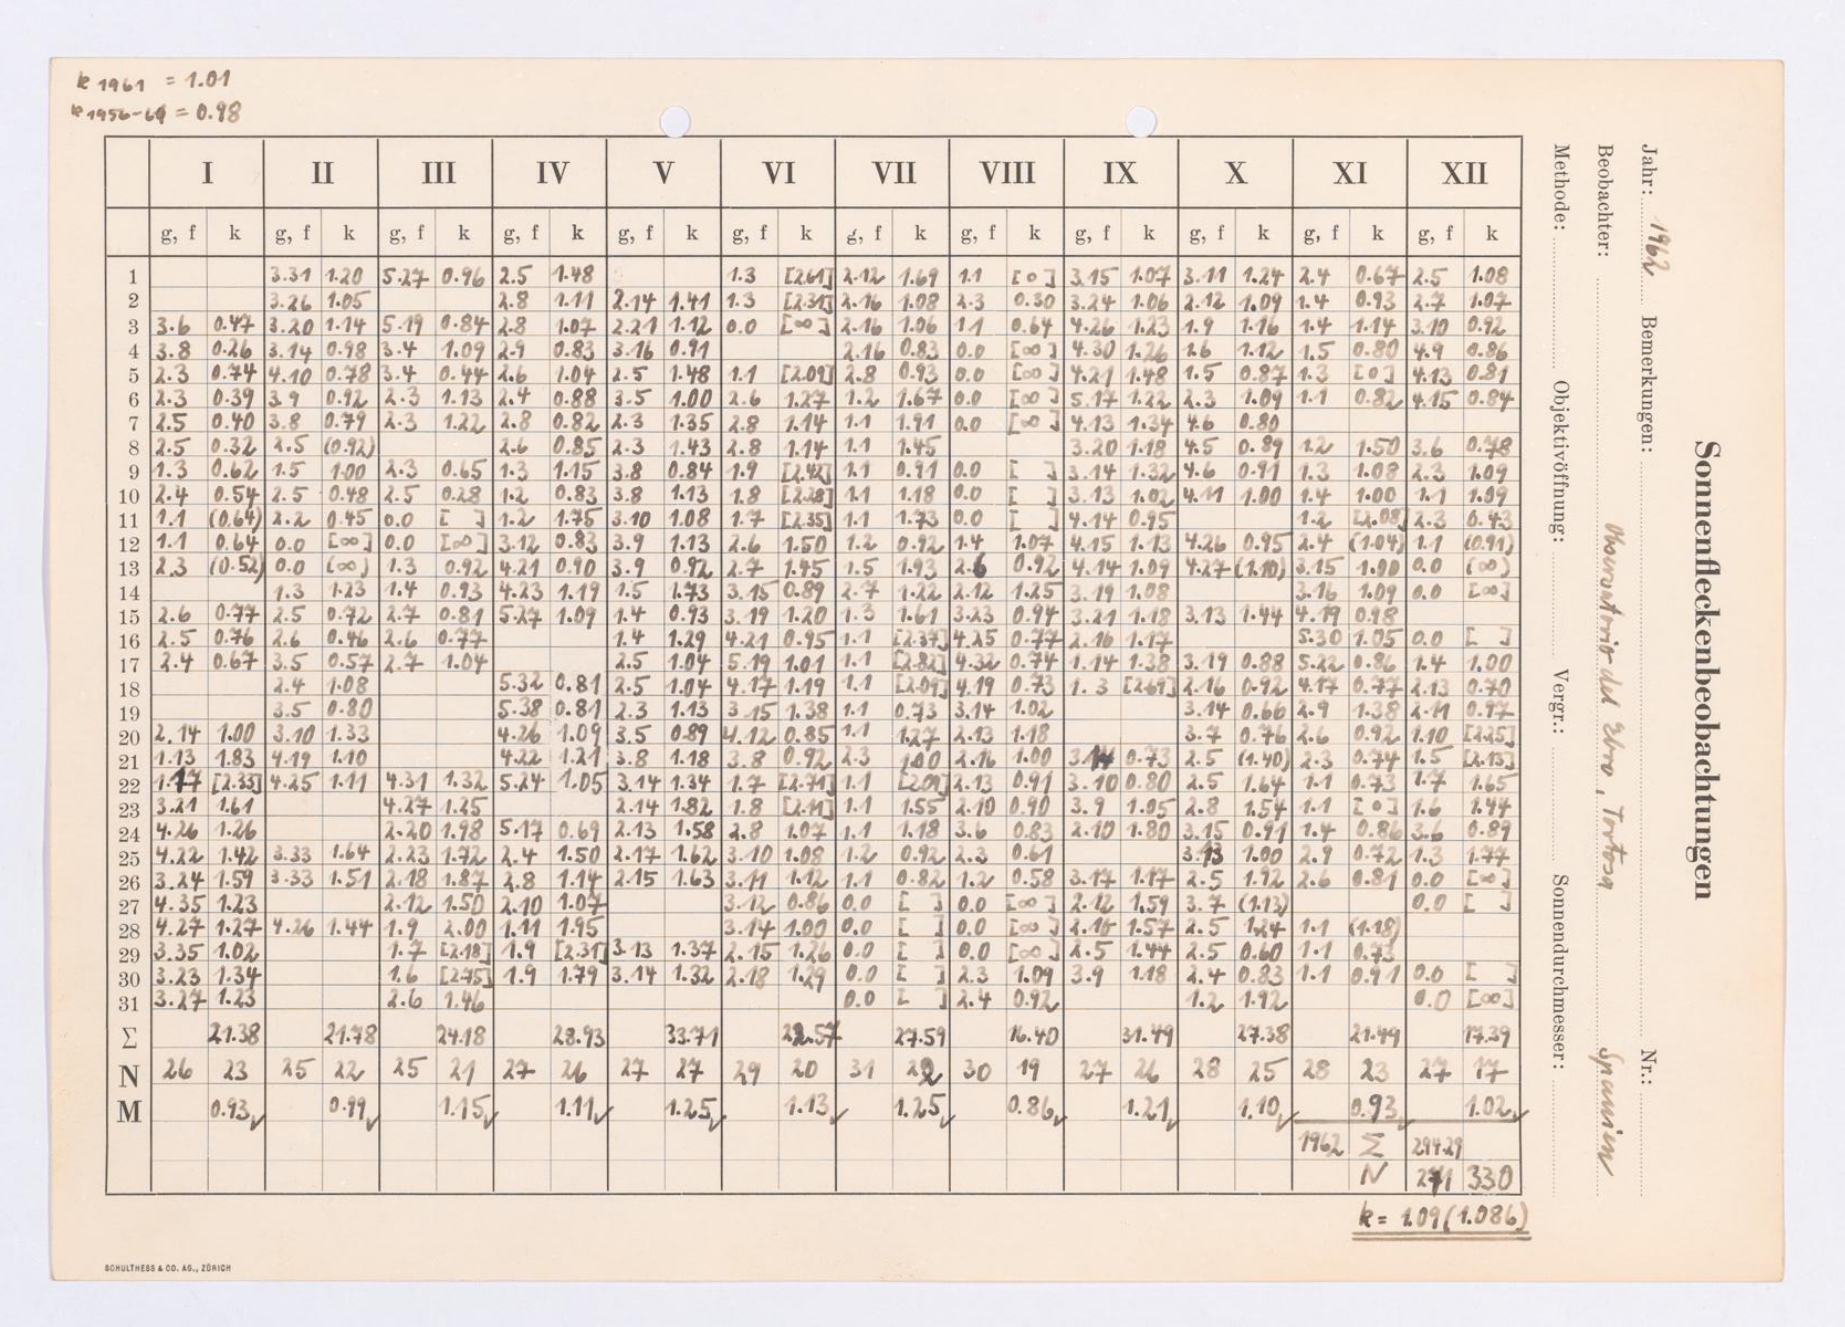 k 1961 = 1.01
k 1956-64 = 0.98
I II III IV V VI VII VIII IX X XI XII
g, f k g, f k g, f k g, f k g, f k g, f k g, f k g, f k g, f k g, f k g, f k g, f k
1 3.31 1.20 5.27 0.96 2.5 1.48 1.3 [2.61] 2.12 1.69 1.1 [0] 3.15 1.07 3.11 1.24 2.4 0.67 2.5 1.08
2 3.26 1.05 2.8 1.11 2.14 1.41 1.3 [2.31] 2.16 1.08 2.3 0.30 3.24 1.06 2.12 1.09 1.4 0.93 2.7 1.07
3 3.6 0.47 3.20 1.14 5.19 0.84 2.8 1.07 2.21 1.12 0.0 [∞] 2.16 1.06 1.1 0.64 4.26 1.23 1.9 1.16 1.4 1.14 3.10 0.92
4 3.8 0.26 3.14 0.98 3.4 1.09 2.9 0.83 3.16 0.91 2.16 0.83 0.0 [∞] 4.30 1.26 1.6 1.12 1.5 0.80 4.9 0.86
5 2.3 0.74 4.10 0.78 3.4 0.44 2.6 1.04 2.5 1.48 1.1 [2.09] 2.8 0.93 0.0 [∞] 4.21 1.48 1.5 0.87 1.3 [0] 4.13 0.81
6 2.3 0.39 3.9 0.92 2.3 1.13 2.4 0.88 3.5 1.00 2.6 1.27 1.2 1.67 0.0 [∞] 5.17 1.22 2.3 1.09 1.1 0.82 4.15 0.84
7 2.5 0.40 3.8 0.79 2.3 1.22 2.8 0.82 2.3 1.35 2.8 1.14 1.1 1.91 0.0 [∞] 4.13 1.34 4.6 0.80
8 2.5 0.32 2.5 (0.92) 2.6 0.85 2.3 1.43 2.8 1.14 1.1 1.45 3.20 1.18 4.5 0.89 1.2 1.50 3.6 0.78
9 1.3 0.62 1.5 1.00 2.3 0.65 1.3 1.15 3.8 0.84 1.9 [2.42] 1.1 0.91 0.0 [ ] 3.14 1.32 4.6 0.91 1.3 1.08 2.3 1.09
10 2.4 0.54 2.5 0.48 2.5 0.28 1.2 0.83 3.8 1.13 1.8 [2.28] 1.1 1.18 0.0 [ ] 3.13 1.02 4.11 1.00 1.4 1.00 1.1 1.09
11 1.1 (0.64) 2.2 0.45 0.0 [ ] 1.2 1.75 3.10 1.08 1.7 [2.35] 1.1 1.73 0.0 [ ] 4.14 0.95 1.2 [2.08] 2.3 0.43
12 1.1 0.64 0.0 [∞] 0.0 [∞] 3.12 0.83 3.9 1.13 2.6 1.50 1.2 0.92 1.4 1.07 4.15 1.13 4.26 0.95 2.4 (1.04) 1.1 (0.91)
13 2.3 (0.52) 0.0 (∞) 1.3 0.92 4.21 0.90 3.9 0.92 2.7 1.45 1.5 1.93 2.6 0.92 4.14 1.09 4.27 (1.10) 3.15 1.00 0.0 (∞)
14 1.3 1.23 1.4 0.93 4.23 1.19 1.5 1.73 3.15 0.89 2.7 1.22 2.12 1.25 3.19 1.08 3.16 1.09 0.0 [∞]
15 2.6 0.77 2.5 0.72 2.7 0.81 5.27 1.09 1.4 0.93 3.19 1.20 1.3 1.61 3.23 0.94 3.21 1.18 3.13 1.44 4.19 0.98
16 2.5 0.76 2.6 0.46 2.6 0.77 1.4 1.29 4.21 0.95 1.1 [2.37] 4.25 0.77 2.16 1.17 5.30 1.05 0.0 [ ]
17 2.4 0.67 3.5 0.57 2.7 1.04 2.5 1.04 5.19 1.01 1.1 [2.82] 4.32 0.74 1.14 1.38 3.19 0.88 5.22 0.86 1.4 1.00
18 2.4 1.08 5.32 0.81 2.5 1.04 4.17 1.19 1.1 [2.09] 4.19 0.73 1.3 [2.69] 2.16 0.92 4.17 0.77 2.13 0.70
19 3.5 0.80 5.38 0.81 2.3 1.13 3.15 1.38 1.1 0.73 3.14 1.02 3.14 0.66 2.9 1.38 2.11 0.97
20 2.14 1.00 3.10 1.33 4.26 1.09 3.5 0.89 4.12 0.85 1.1 1.27 2.13 1.18 3.7 0.76 2.6 0.92 1.10 [2.25]
21 1.13 1.83 4.19 1.10 4.22 1.21 3.8 1.18 3.8 0.92 2.3 1.00 2.16 1.00 3.14 0.73 2.5 (1.40) 2.3 0.74 1.5 [2.13]
22 1.17 [2.33] 4.25 1.11 4.31 1.32 5.24 1.05 3.14 1.34 1.7 [2.71] 1.1 [2.09] 2.13 0.91 3.10 0.80 2.5 1.64 1.1 0.73 1.7 1.65
23 3.21 1.61 4.27 1.25 2.14 1.82 1.8 [2.11] 1.1 1.55 2.10 0.90 3.9 1.05 2.8 1.54 1.1 [0] 1.6 1.44
24 4.26 1.26 2.20 1.98 5.17 0.69 2.13 1.58 2.8 1.07 1.1 1.18 3.6 0.83 2.10 1.80 3.15 0.91 1.4 0.86 3.6 0.89
25 4.22 1.42 3.33 1.64 2.23 1.72 2.4 1.50 2.17 1.62 3.10 1.08 1.2 0.92 2.3 0.61 3.13 1.00 2.9 0.72 1.3 1.77
26 3.24 1.59 3.33 1.51 2.18 1.87 2.8 1.14 2.15 1.63 3.11 1.12 1.1 0.82 1.2 0.58 3.17 1.17 2.5 1.92 2.6 0.81 0.0 [∞]
27 4.35 1.23 2.12 1.50 2.10 1.07 3.12 0.86 0.0 [ ] 0.0 [∞] 2.12 1.59 3.7 (1.13) 0.0 [ ]
28 4.27 1.27 4.26 1.44 1.9 2.00 1.11 1.95 3.14 1.00 0.0 [ ] 0.0 [∞] 2.16 1.57 2.5 1.24 1.1 (1.18)
29 3.35 1.02 1.7 [2.18] 1.9 [2.31] 3.13 1.37 2.15 1.26 0.0 [ ] 0.0 [∞] 2.5 1.44 2.5 0.60 1.1 0.73
30 3.23 1.34 1.6 [2.75] 1.9 1.79 3.14 1.32 2.18 1.29 0.0 [ ] 2.3 1.09 3.9 1.18 2.4 0.83 1.1 0.91 0.0 [ ]
31 3.27 1.23 2.6 1.46 0.0 [ ] 2.4 0.92 1.2 1.92 0.0 [∞]
Σ 21.38 21.78 24.18 28.93 33.71 22.57 27.59 16.40 31.49 27.38 21.49 17.39
N 26 23 25 22 25 21 27 26 27 27 29 20 31 22 30 19 27 26 28 25 28 23 27 17
M 0.93 0.99 1.15 1.11 1.25 1.13 1.25 0.86 1.21 1.10 0.93 1.02
1962 Σ 294.29
N 271 330
k = 1.09 (1.086)
SCHULTHESS & CO. AG., ZÜRICH
Sonnenfleckenbeobachtungen
Jahr: 1962 Bemerkungen: Nr.:
Beobachter: Observatorio del Ebro, Tortosa Spanien
Methode: Objektivöffnung: Vergr.: Sonnendurchmesser: